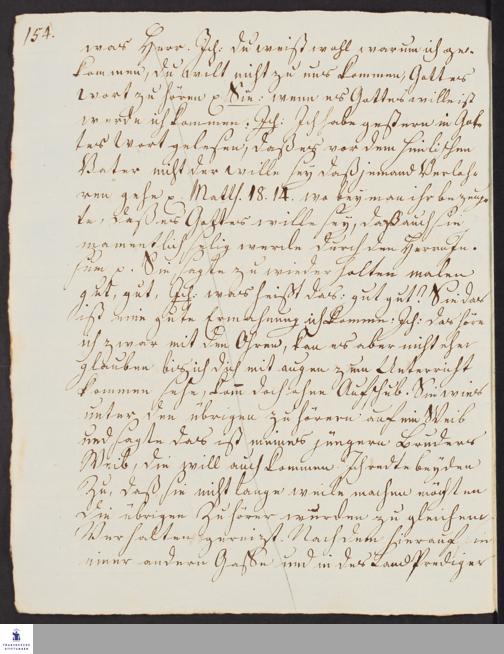 154.
was Herr. Ich: du weißt wohl warum ich ge-
kommen, du wilt nicht zu uns kommen, Gottes
Wort zu hören p. Sie: wenn es Gottes wille ist
werde ich kommen. Ich: Ich habe gestern in Got-
tes Wort gelesen, daß es vor dem himlischen
Vater nicht der wille sey daß jemand Verloh-
ren gehe p. Matth. 18. 14. wobey man ihr bezeug-
te, daß es Gottes wille sey, daß auch sie
namentlich selig werde durch den Herrn Je-
sum p. Sie sagte zu wiederholten malen
gut, gut, Ich: was heißt das: gut gut? Sie das
ist eine gute Ermahnung ich komme. Ich: das höre
ich zwar mit den Ohren, kan es aber nicht eher
glauben bis ich dich mit augen zum Unterricht
kommen sehe, komm doch ohne Aufschub. Sie wies
unter den übrigen Zuhörern auf ein Weib
und sagte das ist meines jüngern Bruders
Weib, die will auch kommen. Ich redte beyden
zu, daß sie nicht lange weile machen möchten
die übrigen Zuhörer wurden zu gleichem
Verhalten Nachdem hierauf in
einer andern Gasse und in des Land Prediger
FRANCKESCHE
STIFTUNGEN